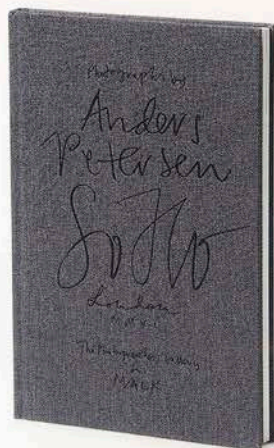 Photographs by
Anders
Petersen
SoHo
London
The Photographers' Gallery
MACK